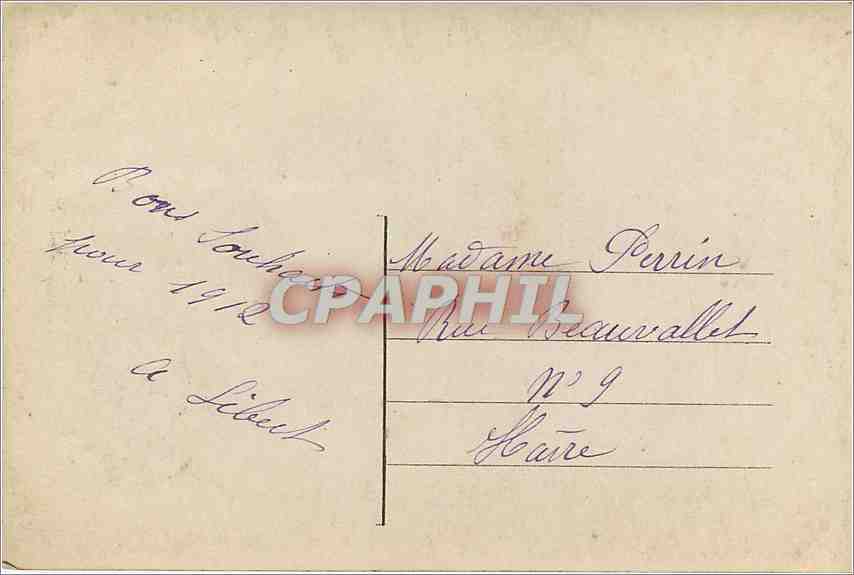 Bons Souhaits
pour 1912
a Libert
Madame Perrin
Rue Beauvallet
N° 9
Havre
CPAPHIL